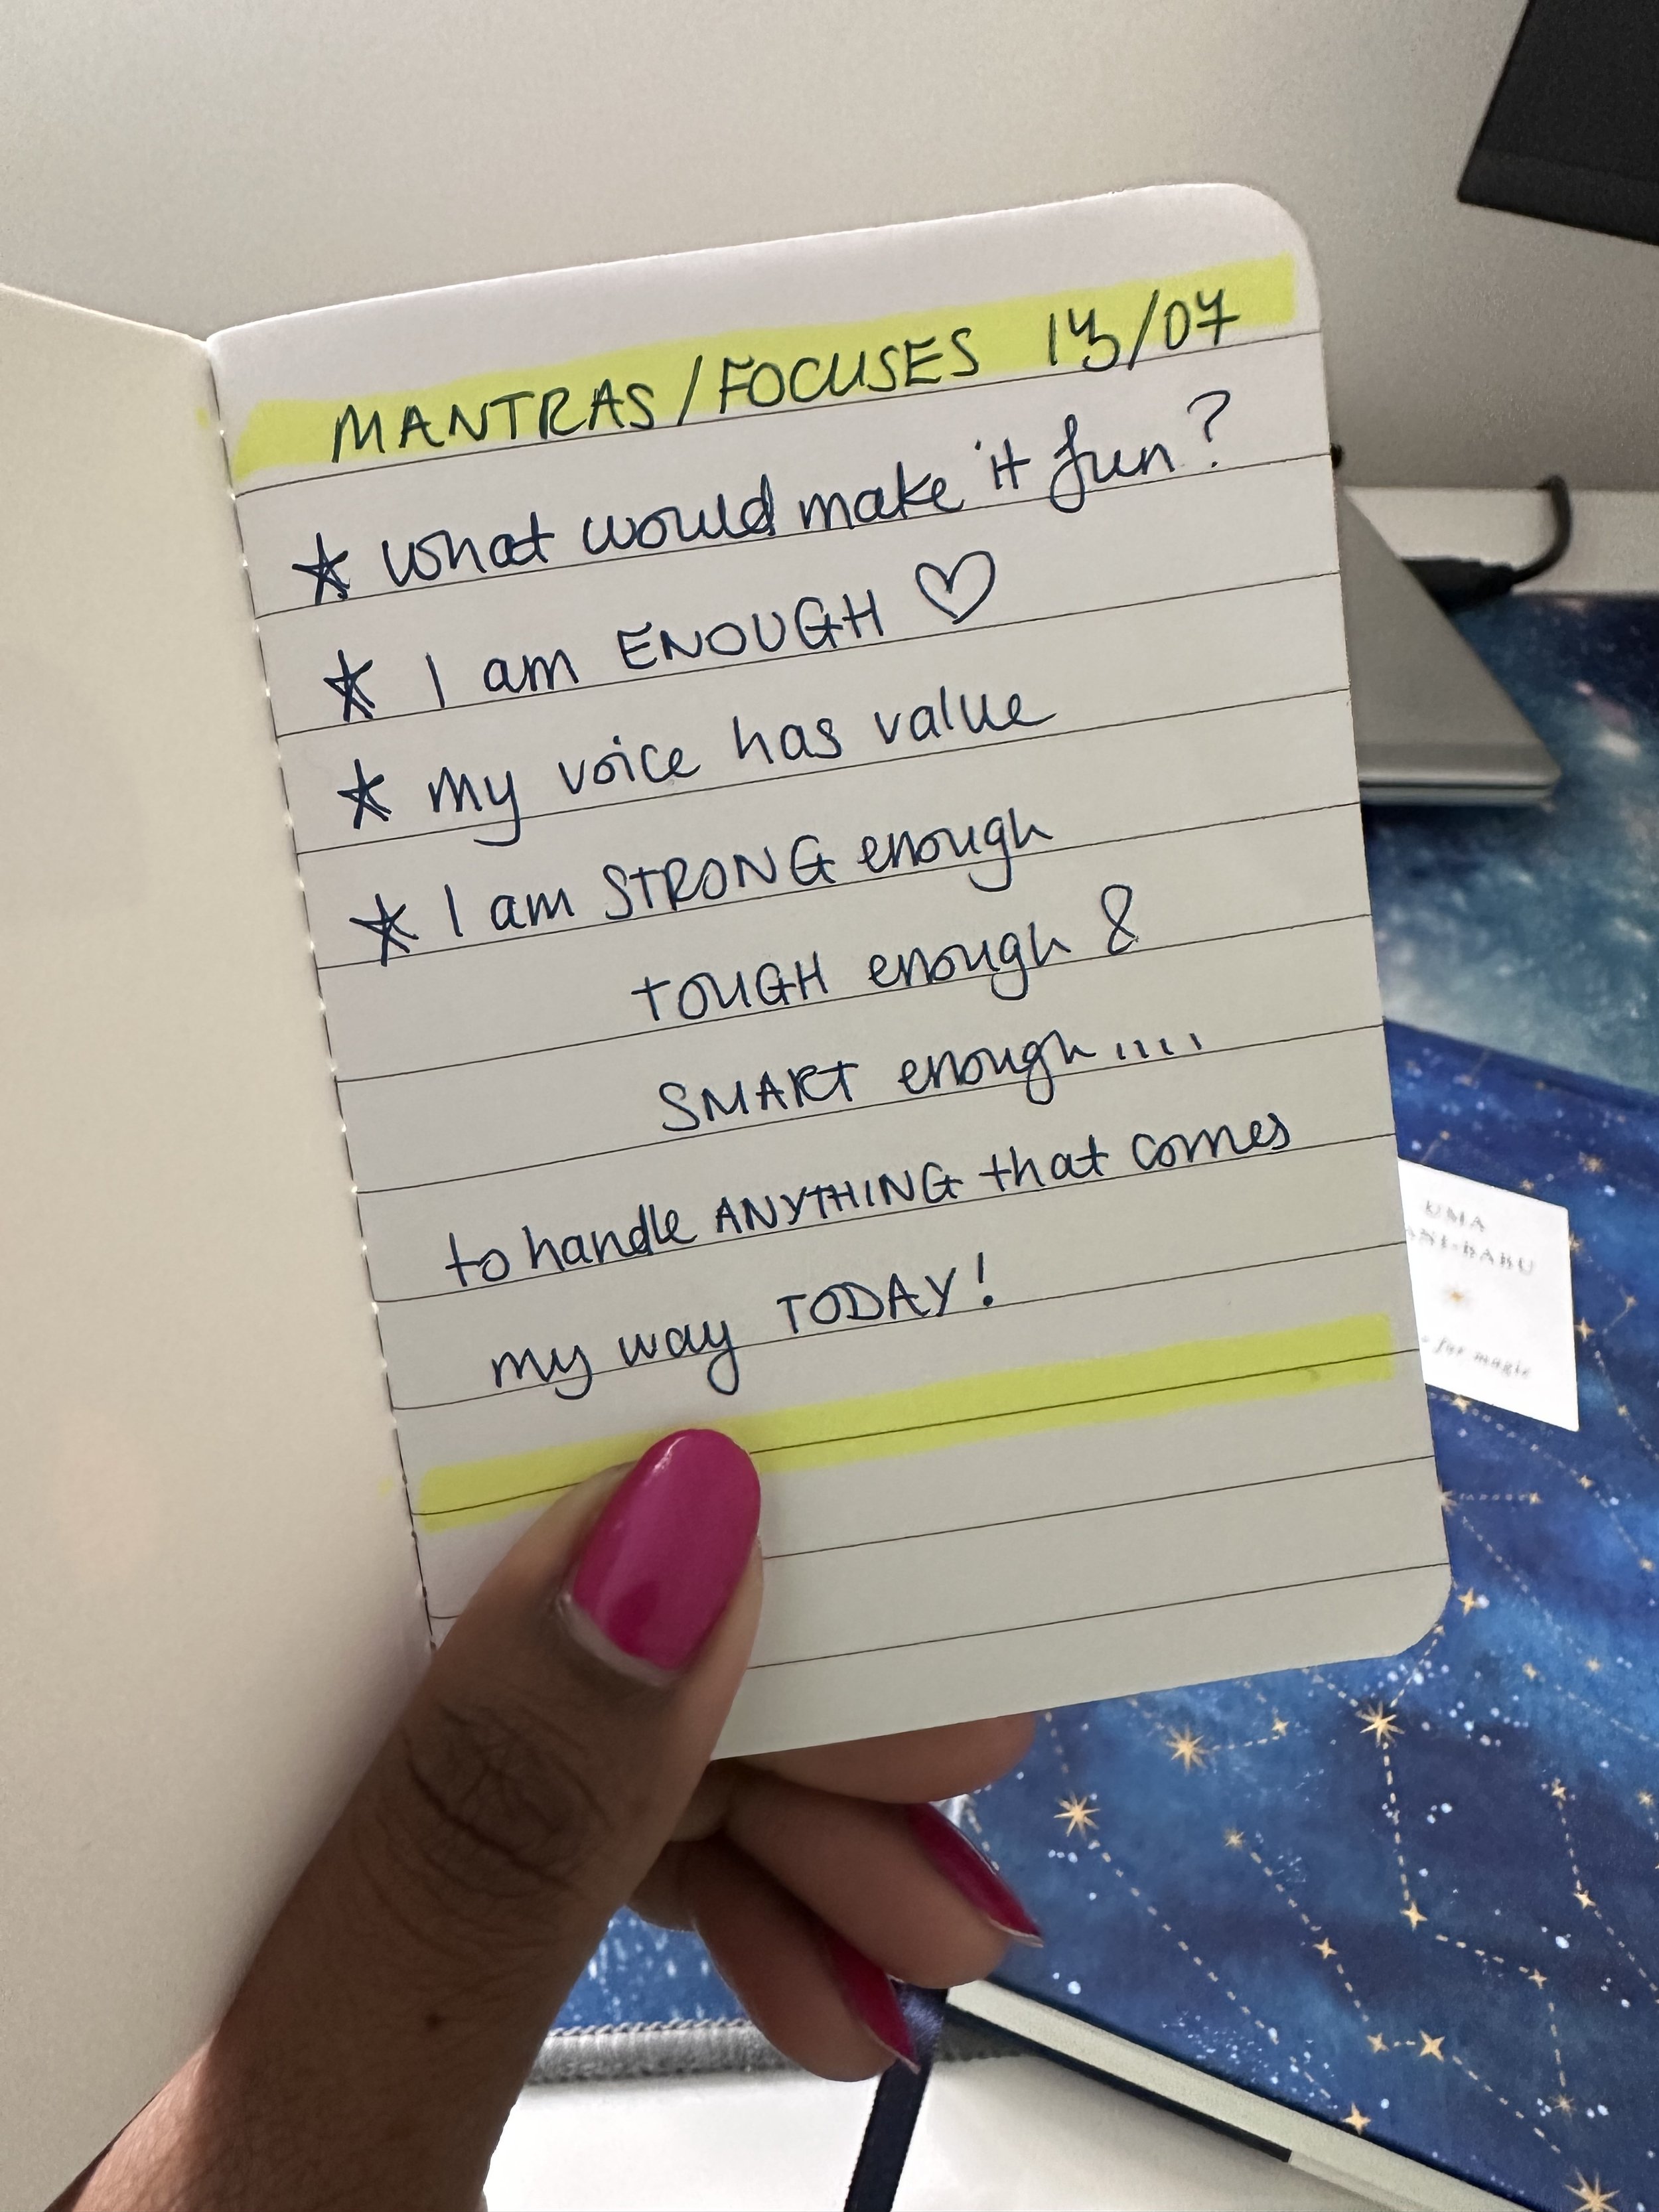 MANTRAS/FOCUSES 13/07
★ what would make it fun?
★ I am ENOUGH ♡
★ my voice has value
★ I am STRONG enough
TOUGH enough &
SMART enough....
to handle ANYTHING that comes
my way TODAY!
UMA
for magic